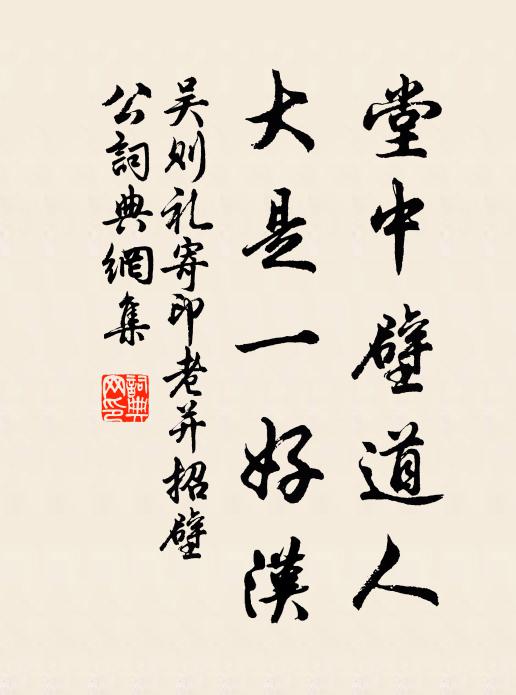 堂中壁道人
大是一好漢
吴则礼寄印老并招壁
公詞典網集
詞典网印